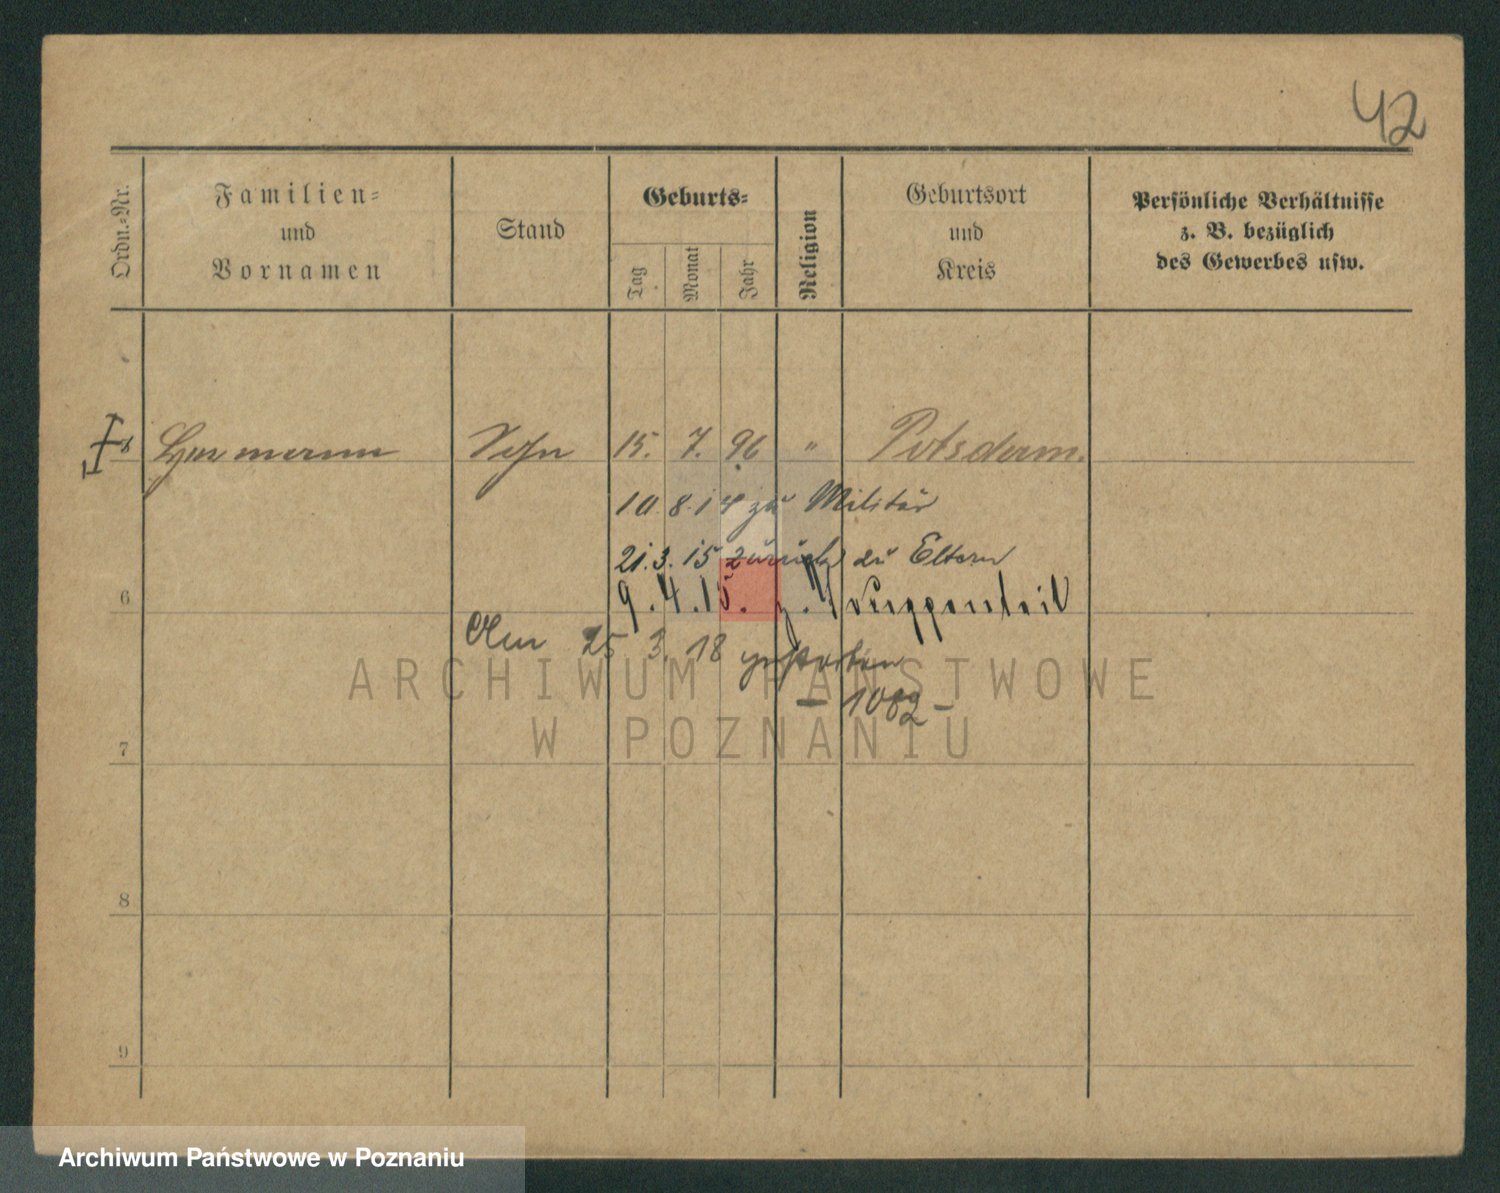 42
Ordn.-Nr.
Familien-
und
Vornamen
Stand
Geburts-
Tag
Monat
Jahr
Religion
Geburtsort
und
Kreis
Persönliche Verhältnisse
z. B. bezüglich
des Gewerbes usw.
Hermann Sohn 15. 7. 96 " Potsdam.
10. 8. 14 zu Militär
21. 3. 15 zurück zu Eltern
6 9. 4. 15. z. Truppenteil
Am 25 3. 18 gestorben
- 1082 -
ARCHIWUM PAŃSTWOWE
W POZNANIU
7
8
9
Archiwum Państwowe w Poznaniu